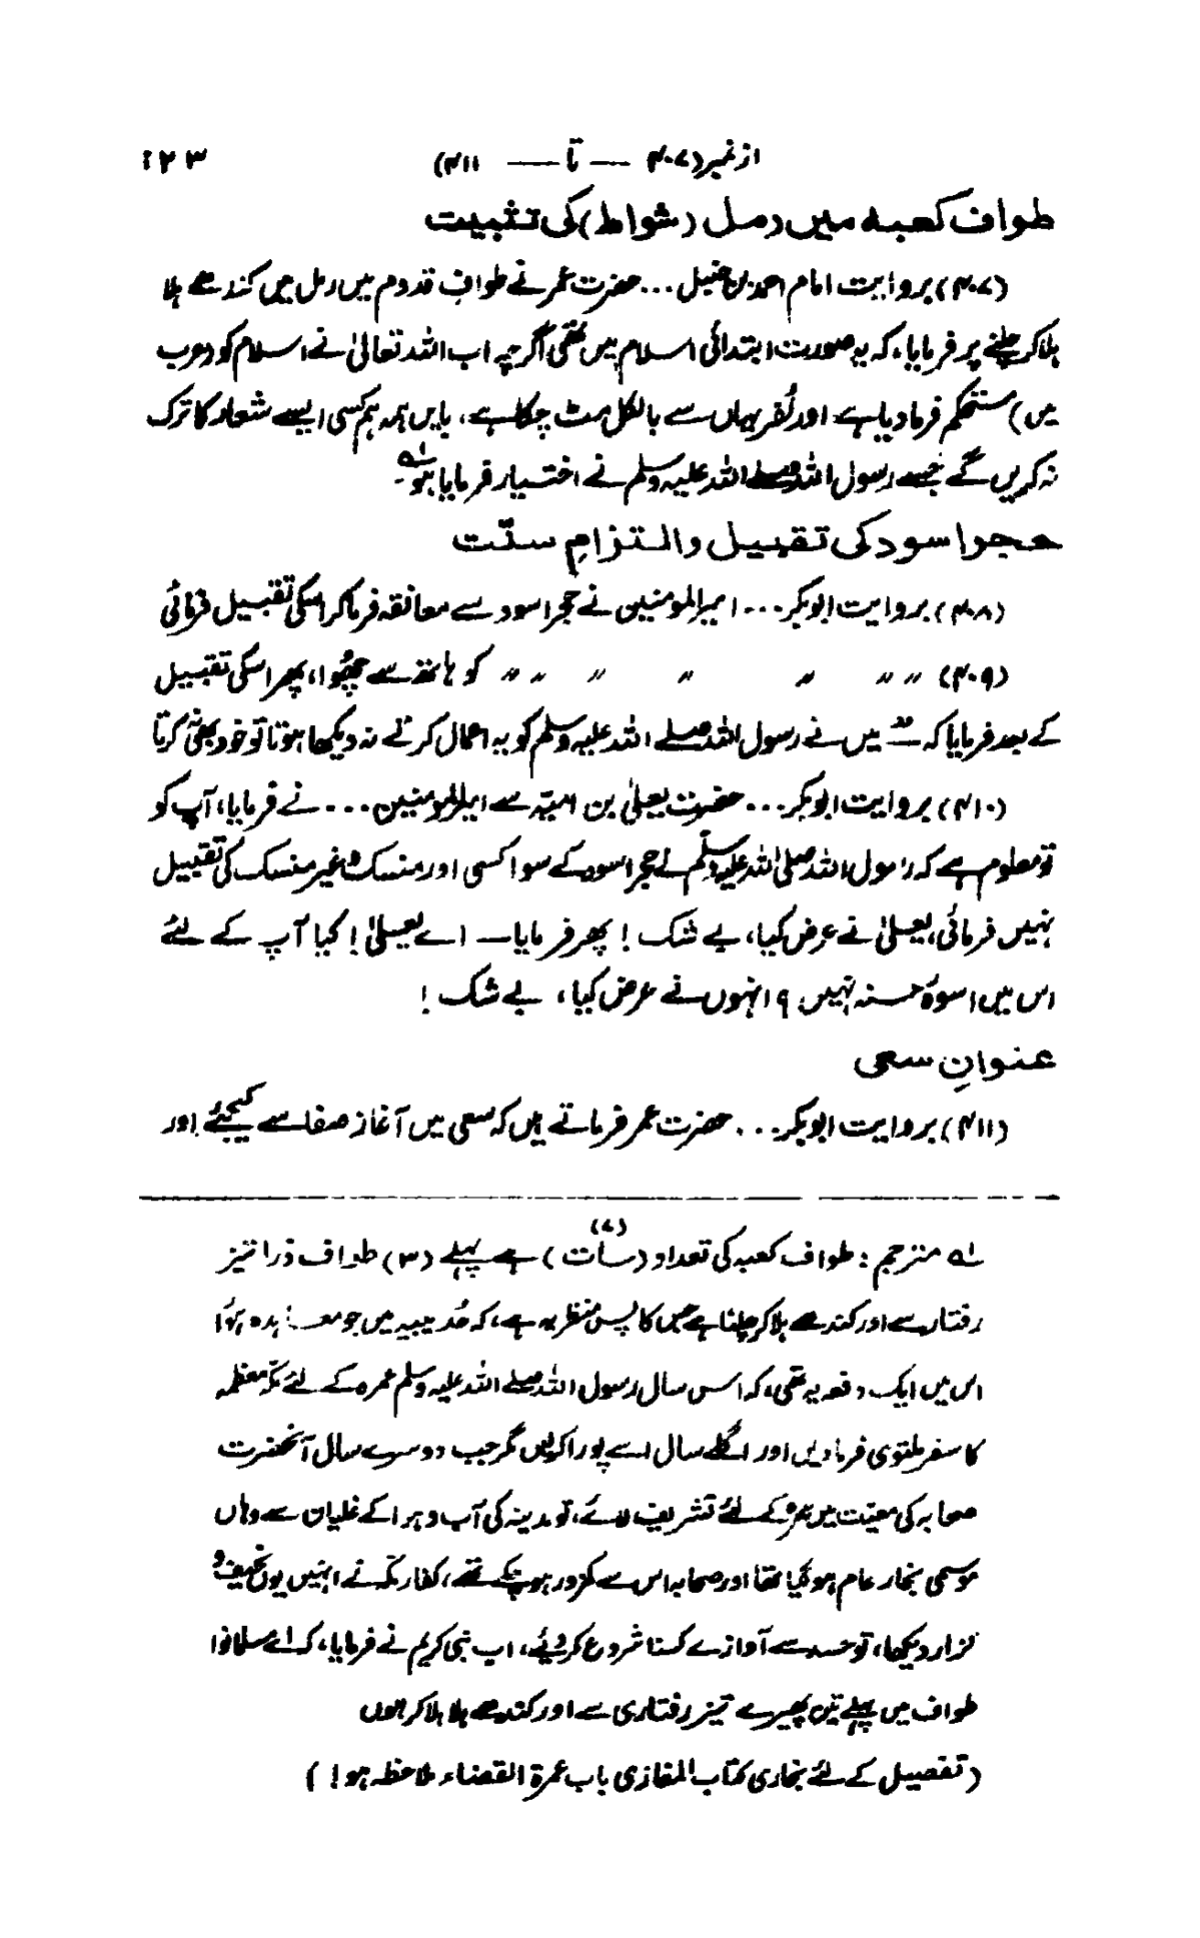 از نمبر (۴۰۷ — تا — ۴۱۱) ۱۲۳
طواف کعبہ میں رمل (شواط) کی تثبیت
(۴۰۷) بروایت امام احمد بن حنبل ... حضرت عمر نے طوافِ قدوم میں رمل میں کندھے ہلا
ہلا کر چلنے پر فرمایا، کہ یہ صورت ابتدائی اسلام میں تھی اگرچہ اب اللہ تعالیٰ نے اسلام کو (عرب
میں) مستحکم فرما دیا ہے اور کُفر یہاں سے بالکل مٹ چکا ہے، بایں ہمہ ہم کسی ایسے شعار کا ترک
نہ کریں گے جسے رسول اللہ صلے اللہ علیہ وسلم نے اختیار فرمایا ہو۔ لہ
حجر اسود کی تقبیل و التزامِ سنّت
(۴۰۸) بروایت ابوبکر ... امیر المومنین نے حجر اسود سے معانقہ فرما کر اسکی تقبیل فرمائی
(۴۰۹) 〃 〃 〃 〃 〃 〃 〃 〃 کو ہاتھ سے چھُوا، پھر اسکی تقبیل
کے بعد فرمایا کہ — میں نے رسول اللہ صلے اللہ علیہ وسلم کو یہ اعمال کرتے نہ دیکھا ہوتا تو خود بھی نہ کرتا
(۴۱۰) بروایت ابوبکر ... حضرت یعلیٰ بن امیّہ سے امیر المومنین ... نے فرمایا، آپ کو
تو معلوم ہے کہ رسول اللہ صلی اللہ علیہ وسلم نے حجر اسود کے سوا کسی اور منسک و غیر منسک کی تقبیل
نہیں فرمائی، یعلیٰ نے عرض کیا، بے شک ! پھر فرمایا — اے یعلیٰ ! کیا آپ کے لئے
اس میں اسوۂ حسنہ نہیں ؟ انہوں نے عرض کیا، بے شک !
عنوانِ سعی
(۴۱۱) بروایت ابوبکر ... حضرت عمر فرماتے ہیں کہ سعی میں آغاز صفا سے کیجئے اور
لہ مترجم : طواف کعبہ کی تعداد (سات) (۷) ہے پہلے (۳) طواف ذرا تیز
رفتار سے اور کندھے ہلا کر چلنا ہے جس کا پس منظر یہ ہے، کہ حُدیبیہ میں جو معاہدہ ہُوا
اس میں ایک دفعہ یہ تھی، کہ اس سال رسول اللہ صلے اللہ علیہ وسلم عمرہ کے لئے مکّہ معظمہ
کا سفر ملتوی فرما دیں اور اگلے سال اسے پورا کریں مگر جب دوسرے سال آنحضرت
صحابہ کی معیّت میں عمرہ کے لئے تشریف لائے، تو مدینہ کی آب و ہوا کے غلیان سے وہاں
موسمی بخار عام ہو گیا تھا اور صحابہ اس سے کمزور ہو چکے تھے، کفار مکّہ نے انہیں یوں نحیف و
نزار دیکھا، تو حسد سے آوازے کسنا شروع کر دیئے، اب نبی کریم نے فرمایا، کہ اے مسلمانو!
طواف میں پہلے تین پھیرے تیز رفتاری سے اور کندھے ہلا ہلا کر ہوں
(تفصیل کے لئے بخاری کتاب المغازی باب عمرۃ القضاء ملاحظہ ہو!)